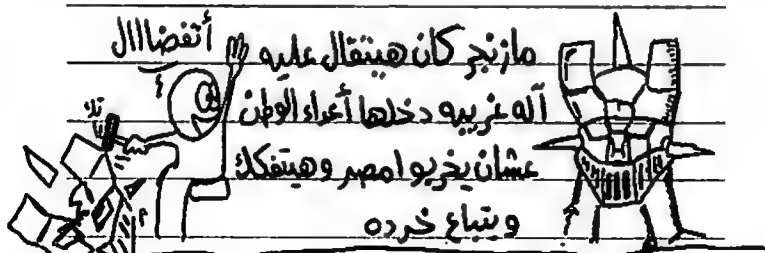 أتفضاااال
مازنجر كان هيتقال عليه
آله غريبه دخلها أعداء الوطن
عشان يخربوا مصر وهيتفكك
ويتباع خرده
تك